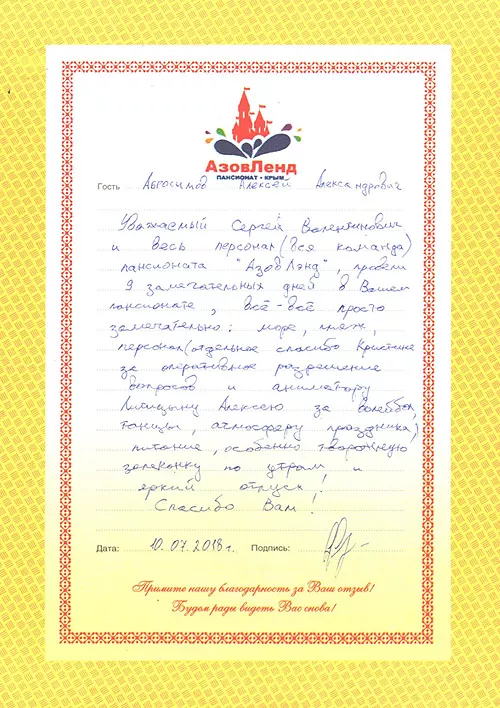 АзовЛенд
ПАНСИОНАТ • КРЫМ
Гость Абросимов Алексей Александрович
Уважаемый Сергей Валентинович
и весь персонал (вся команда)
пансионата "АзовЛэнд", провели
9 замечательных дней в Вашем
пансионате, всё-всё просто
замечательно: море, пляж,
персонал (отдельное спасибо Кристине
за оперативное разрешение
вопросов и аниматору
Алексею за волейбол,
танцы, атмосферу праздника)
питание, особенно творожную
запеканку по утрам и
яркий отпуск!
Спасибо Вам!
Дата: 10.07.2018г. Подпись:
Примите нашу благодарность за Ваш отзыв!
Будем рады видеть Вас снова!